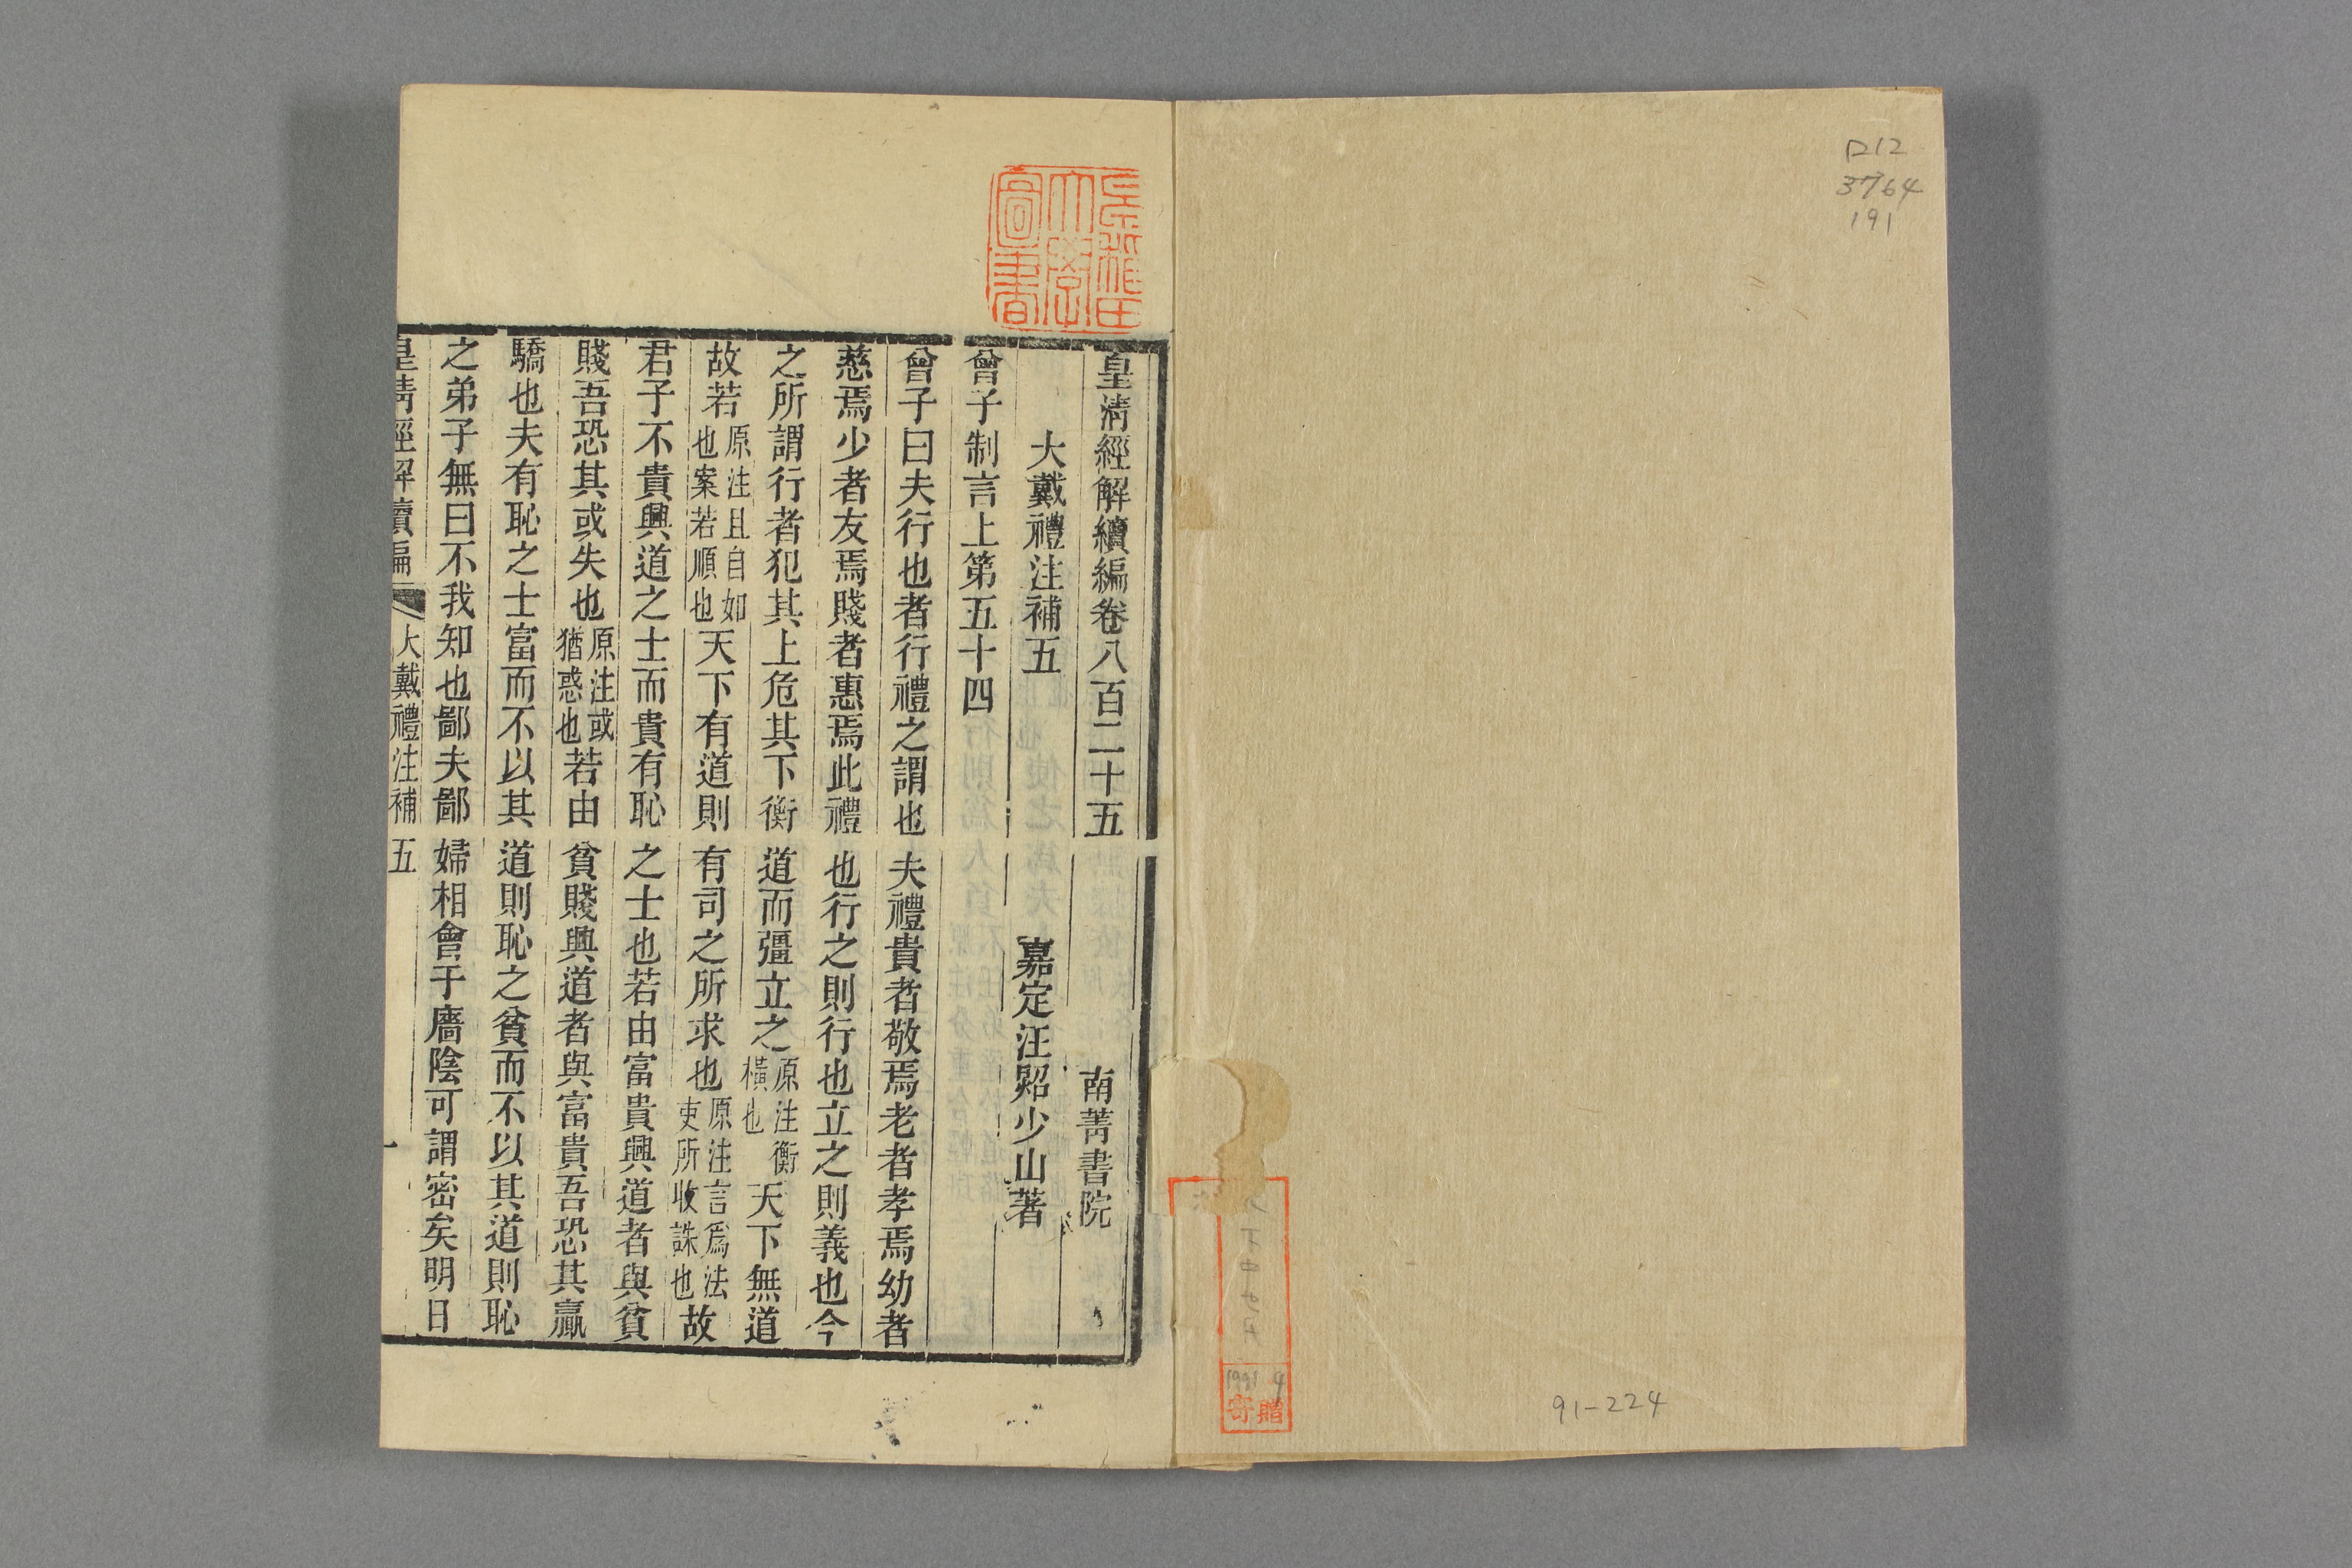 D12
3764
191
91-224
1991 4
寄贈
早稲田
大學
圖書
皇清經解續編卷八百二十五 南菁書院
大戴禮注補五 嘉定汪照少山著
曾子制言上第五十四
曾子曰夫行也者行禮之謂也夫禮貴者敬焉老者孝焉幼者
慈焉少者友焉賤者惠焉此禮也行之則行也立之則義也今
之所謂行者犯其上危其下衡道而彊立之原注衡橫也天下無道
故若原注且自如也案若順也天下有道則有司之所求也原注言爲法吏所收誅也故
君子不貴興道之士而貴有恥之士也若由富貴興道者與貧
賤吾恐其或失也原注或猶惑也若由貧賤興道者與富貴吾恐其羸
驕也夫有恥之士富而不以其道則恥之貧而不以其道則恥
之弟子無曰不我知也鄙夫鄙婦相會于廧陰可謂密矣明日
皇清經解續編 大戴禮注補五 一